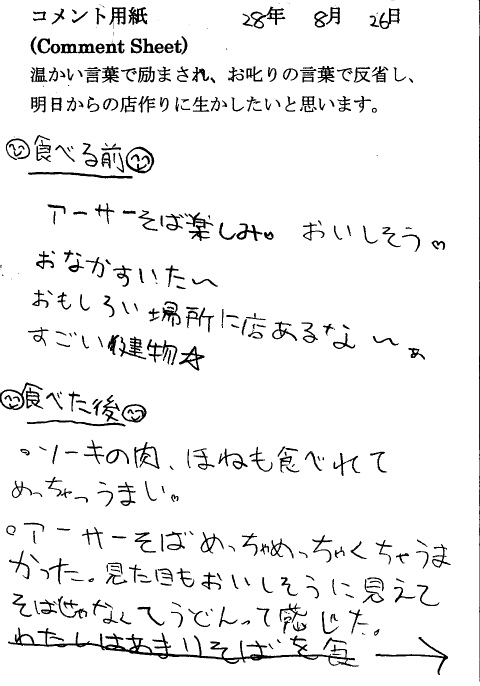 コメント用紙 28年 8月 26日
(Comment Sheet)
温かい言葉で励まされ、お叱りの言葉で反省し、
明日からの店作りに生かしたいと思います。
食べる前
アーサーそば楽しみ。 おいしそう。
おなかすいた〜
おもしろい場所に店あるな〜ぁ
すごい建物☆
食べた後
。ソーキの肉、ほねも食べれて
めっちゃっうまい。
。アーサーそばめっちゃめっちゃくちゃうま
かった。見た目もおいしそうに見えて
そばじゃなくてうどんって感じた。
わたしはあまりそばを食 →